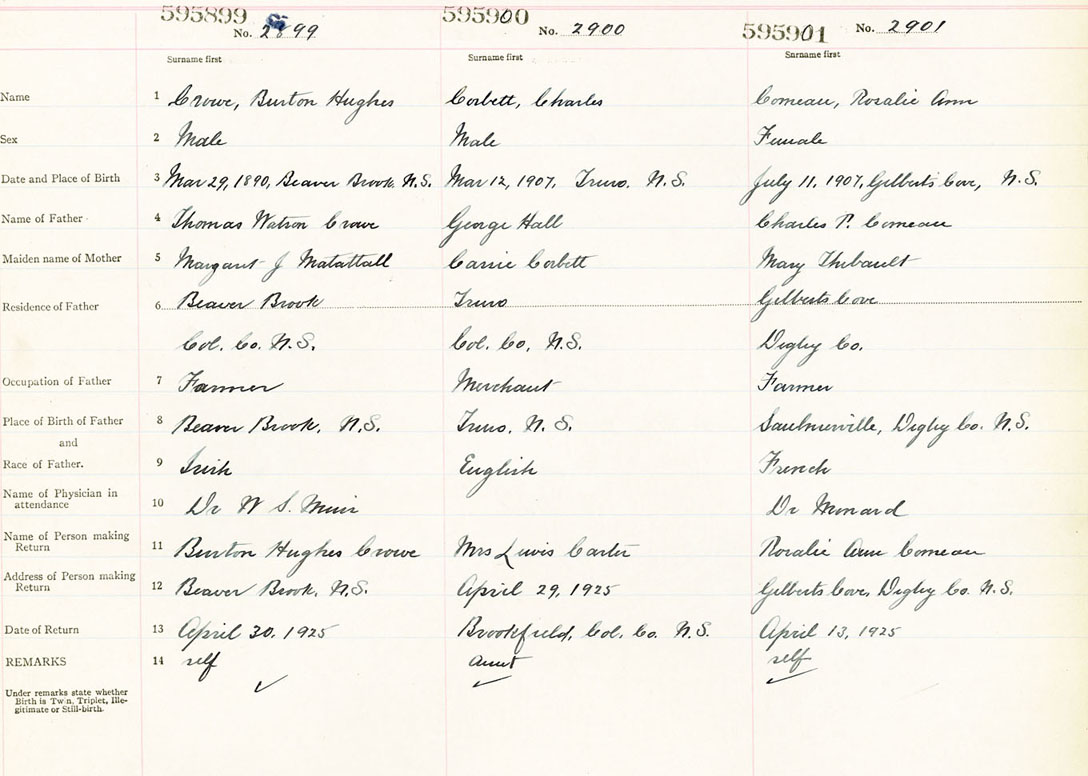 595899 595900 595901
No. 2899 No. 2900 No. 2901
Surname first Surname first Surname first
Name 1 Crowe, Burton Hughes Corbett, Charles Comeau, Rosalie Ann
Sex 2 Male Male Female
Date and Place of Birth 3 Mar 29, 1890, Beaver Brook N.S. Mar 12, 1907, Truro. N.S. July 11, 1907, Gilberts Cove, N.S.
Name of Father 4 Thomas Watson Crowe George Hall Charles P. Comeau
Maiden name of Mother 5 Margaret J Matattall Carrie Corbett Mary Thibault
Residence of Father 6 Beaver Brook Truro Gilberts Cove
Col. Co. N.S. Col. Co, N.S. Digby Co.
Occupation of Father 7 Farmer Merchant Farmer
Place of Birth of Father 8 Beaver Brook, N.S. Truro, N.S. Saulnierville, Digby Co. N.S.
and
Race of Father. 9 Irish English French
Name of Physician in
attendance 10 Dr W S. Muir Dr
Name of Person making
Return 11 Burton Hughes Crowe Mrs Lewis Carter Rosalie Ann Comeau
Address of Person making
Return 12 Beaver Brook, N.S. April 29, 1925 Gilberts Cove, Digby Co. N.S.
Date of Return 13 April 30, 1925 Brookfield, Col. Co. N.S. April 13, 1925
REMARKS 14 self aunt self
Under remarks state whether
Birth is Twin, Triplet, Ille-
gitimate or Still-birth.